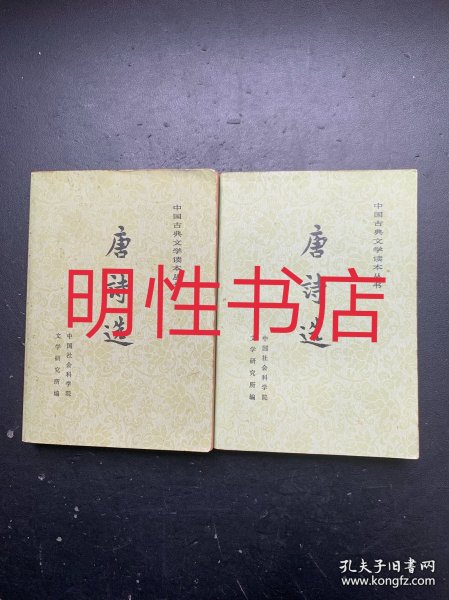 中国古典文学读本丛书
唐诗选
中国社会科学院
文学研究所编
中国古典文学读本丛书
唐诗选
中国社会科学院
文学研究所编
明性书店
孔夫子旧书网
www.kongfz.com